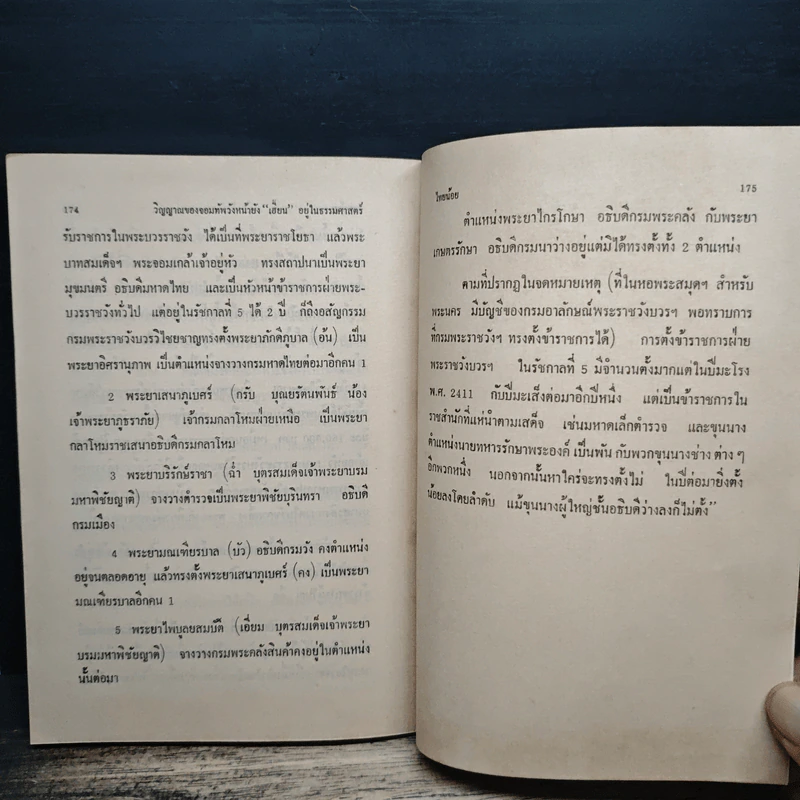 174 วิญญาณของจอมทัพวังหน้ายัง "เฮี้ยน" อยู่ในธรรมศาสตร์
รับราชการในพระบวรราชวัง ได้เป็นที่พระยาราชโยธา แล้วพระ
บาทสมเด็จฯ พระจอมเกล้าเจ้าอยู่หัว ทรงสถาปนาเป็นพระยา
มุขมนตรี อธิบดีมหาดไทย และเป็นหัวหน้าข้าราชการฝ่ายพระ-
บวรราชวังทั่วไป แต่อยู่ในรัชกาลที่ 5 ได้ 2 ปี ก็ถึงอสัญกรรม
กรมพระราชวังบวรวิไชยชาญทรงตั้งพระยาภักดีภูบาล (อ้น) เป็น
พระยาอิศรานุภาพ เป็นตำแหน่งจางวางกรมหาดไทยต่อมาอีกคน 1
2 พระยาเสนาภูเบศร์ (กรับ บุณยรัตนพันธ์ น้อง
เจ้าพระยาภูธราภัย) เจ้ากรมกลาโหมฝ่ายเหนือ เป็นพระยา
กลาโหมราชเสนาอธิบดีกรมกลาโหม
3 พระยาบริรักษ์ราชา (ฉ่ำ บุตรสมเด็จเจ้าพระยาบรม
มหาพิชัยญาติ) จางวางตำรวจเป็นพระยาพิชัยบุรินทรา อธิบดี
กรมเมือง
4 พระยามณเฑียรบาล (บัว) อธิบดีกรมวัง คงตำแหน่ง
อยู่จนตลอดอายุ แล้วทรงตั้งพระยาเสนาภูเบศร์ (คง) เป็นพระยา
มณเฑียรบาลอีกคน 1
5 พระยาไพบูลยสมบัติ (เอี่ยม บุตรสมเด็จเจ้าพระยา
บรมมหาพิชัยญาติ) จางวางกรมพระคลังสินค้าคงอยู่ในตำแหน่ง
นั้นต่อมา
ไทยน้อย 175
ตำแหน่งพระยาไกรโกษา อธิบดีกรมพระคลัง กับพระยา
เกษตรรักษา อธิบดีกรมนาว่างอยู่แต่มิได้ทรงตั้งทั้ง 2 ตำแหน่ง
ตามที่ปรากฏในจดหมายเหตุ (ที่ในหอพระสมุดฯ สำหรับ
พระนคร มีบัญชีของกรมอาลักษณ์พระราชวังบวรฯ พอทราบการ
ที่กรมพระราชวังฯ ทรงตั้งข้าราชการได้) การตั้งข้าราชการฝ่าย
พระราชวังบวรฯ ในรัชกาลที่ 5 มีจำนวนตั้งมากแต่ในปีมะโรง
พ.ศ. 2411 กับปีมะเส็งต่อมาอีกปีหนึ่ง แต่เป็นข้าราชการใน
ราชสำนักที่แห่นำตามเสด็จ เช่นมหาดเล็กตำรวจ และขุนนาง
ตำแหน่งนายทหารรักษาพระองค์ เป็นพัน กับพวกขุนนางช่าง ต่าง ๆ
อีกพวกหนึ่ง นอกจากนั้นหาใคร่จะทรงตั้งไม่ ในปีต่อมายิ่งตั้ง
น้อยลงโดยลำดับ แม้ขุนนางผู้ใหญ่ชั้นอธิบดีว่างลงก็ไม่ตั้ง"